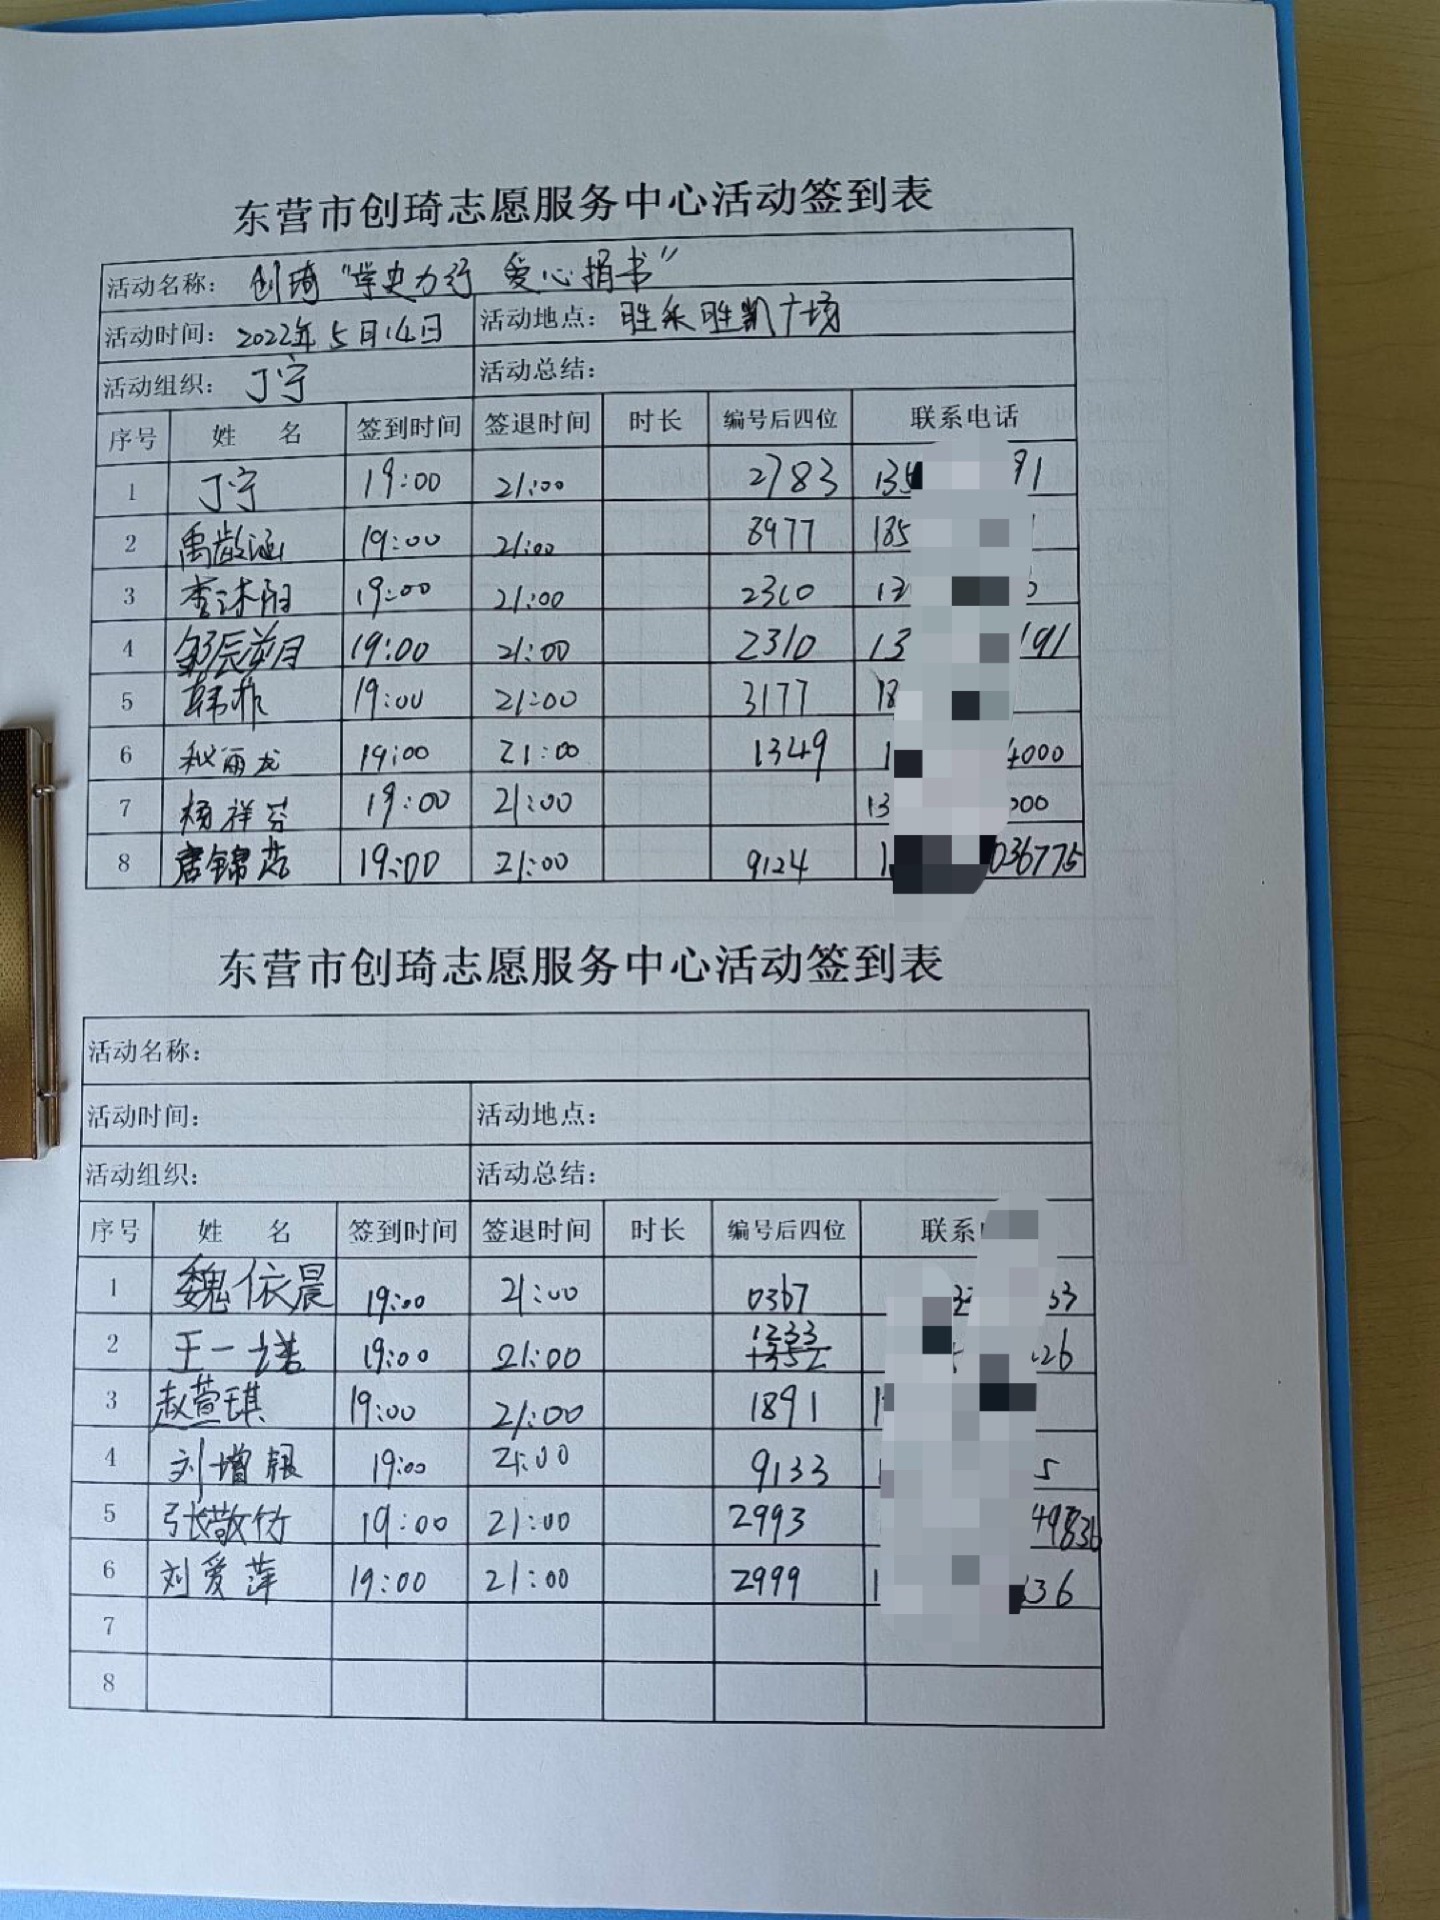 东营市创琦志愿服务中心活动签到表
活动名称: 创琦“学史力行 爱心捐书”
活动时间: 2022年5月14日 活动地点: 胜采胜凯广场
活动组织: 丁宁 活动总结:
序号 姓 名 签到时间 签退时间 时长 编号后四位 联系电话
1 丁宁 19:00 21:00 2783 135 91
2 禹懿涵 19:00 21:00 8977 185
3 李沐阳 19:00 21:00 2310
4 19:00 21:00 2310 13 191
5 19:00 21:00 3177 18
6 19:00 21:00 1349 1 4000
7 杨祥芬 19:00 21:00 13 000
8 唐锦 19:00 21:00 9124 1 036775
东营市创琦志愿服务中心活动签到表
活动名称:
活动时间: 活动地点:
活动组织: 活动总结:
序号 姓 名 签到时间 签退时间 时长 编号后四位 联系
1 魏依晨 19:00 21:00 0367 33
2 王一诺 19:00 21:00 1233 26
3 赵萱琪 19:00 21:00 1891 1
4 刘增银 19:00 21:00 9133 5
5 张敬竹 19:00 21:00 2993 49836
6 刘爱萍 19:00 21:00 2999 1 36
7
8